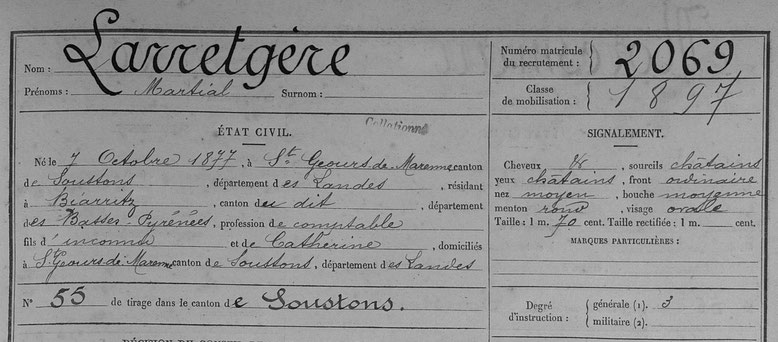 Nom : Larretgère
Prénoms : Martial Surnom :
Numéro matricule du recrutement : 2069
Classe de mobilisation : 1897
Collationné
ÉTAT CIVIL.
Né le 7 Octobre 1877, à St Geours de Maremne canton
de Soustons, département des Landes, résidant
à Biarritz, canton du dit, département
des Basses-Pyrénées, profession de comptable
fils d'inconnu et de Catherine, domiciliés
à St Geours de Maremne canton de Soustons, département des Landes
N° 55 de tirage dans le canton de Soustons.
SIGNALEMENT.
Cheveux &, sourcils châtains
yeux châtains, front ordinaire
nez moyen, bouche moyenne
menton rond, visage ovale
Taille : 1 m. 70 cent. Taille rectifiée : 1 m. cent.
MARQUES PARTICULIÈRES :
Degré d'instruction : générale (1). 3
militaire (2).